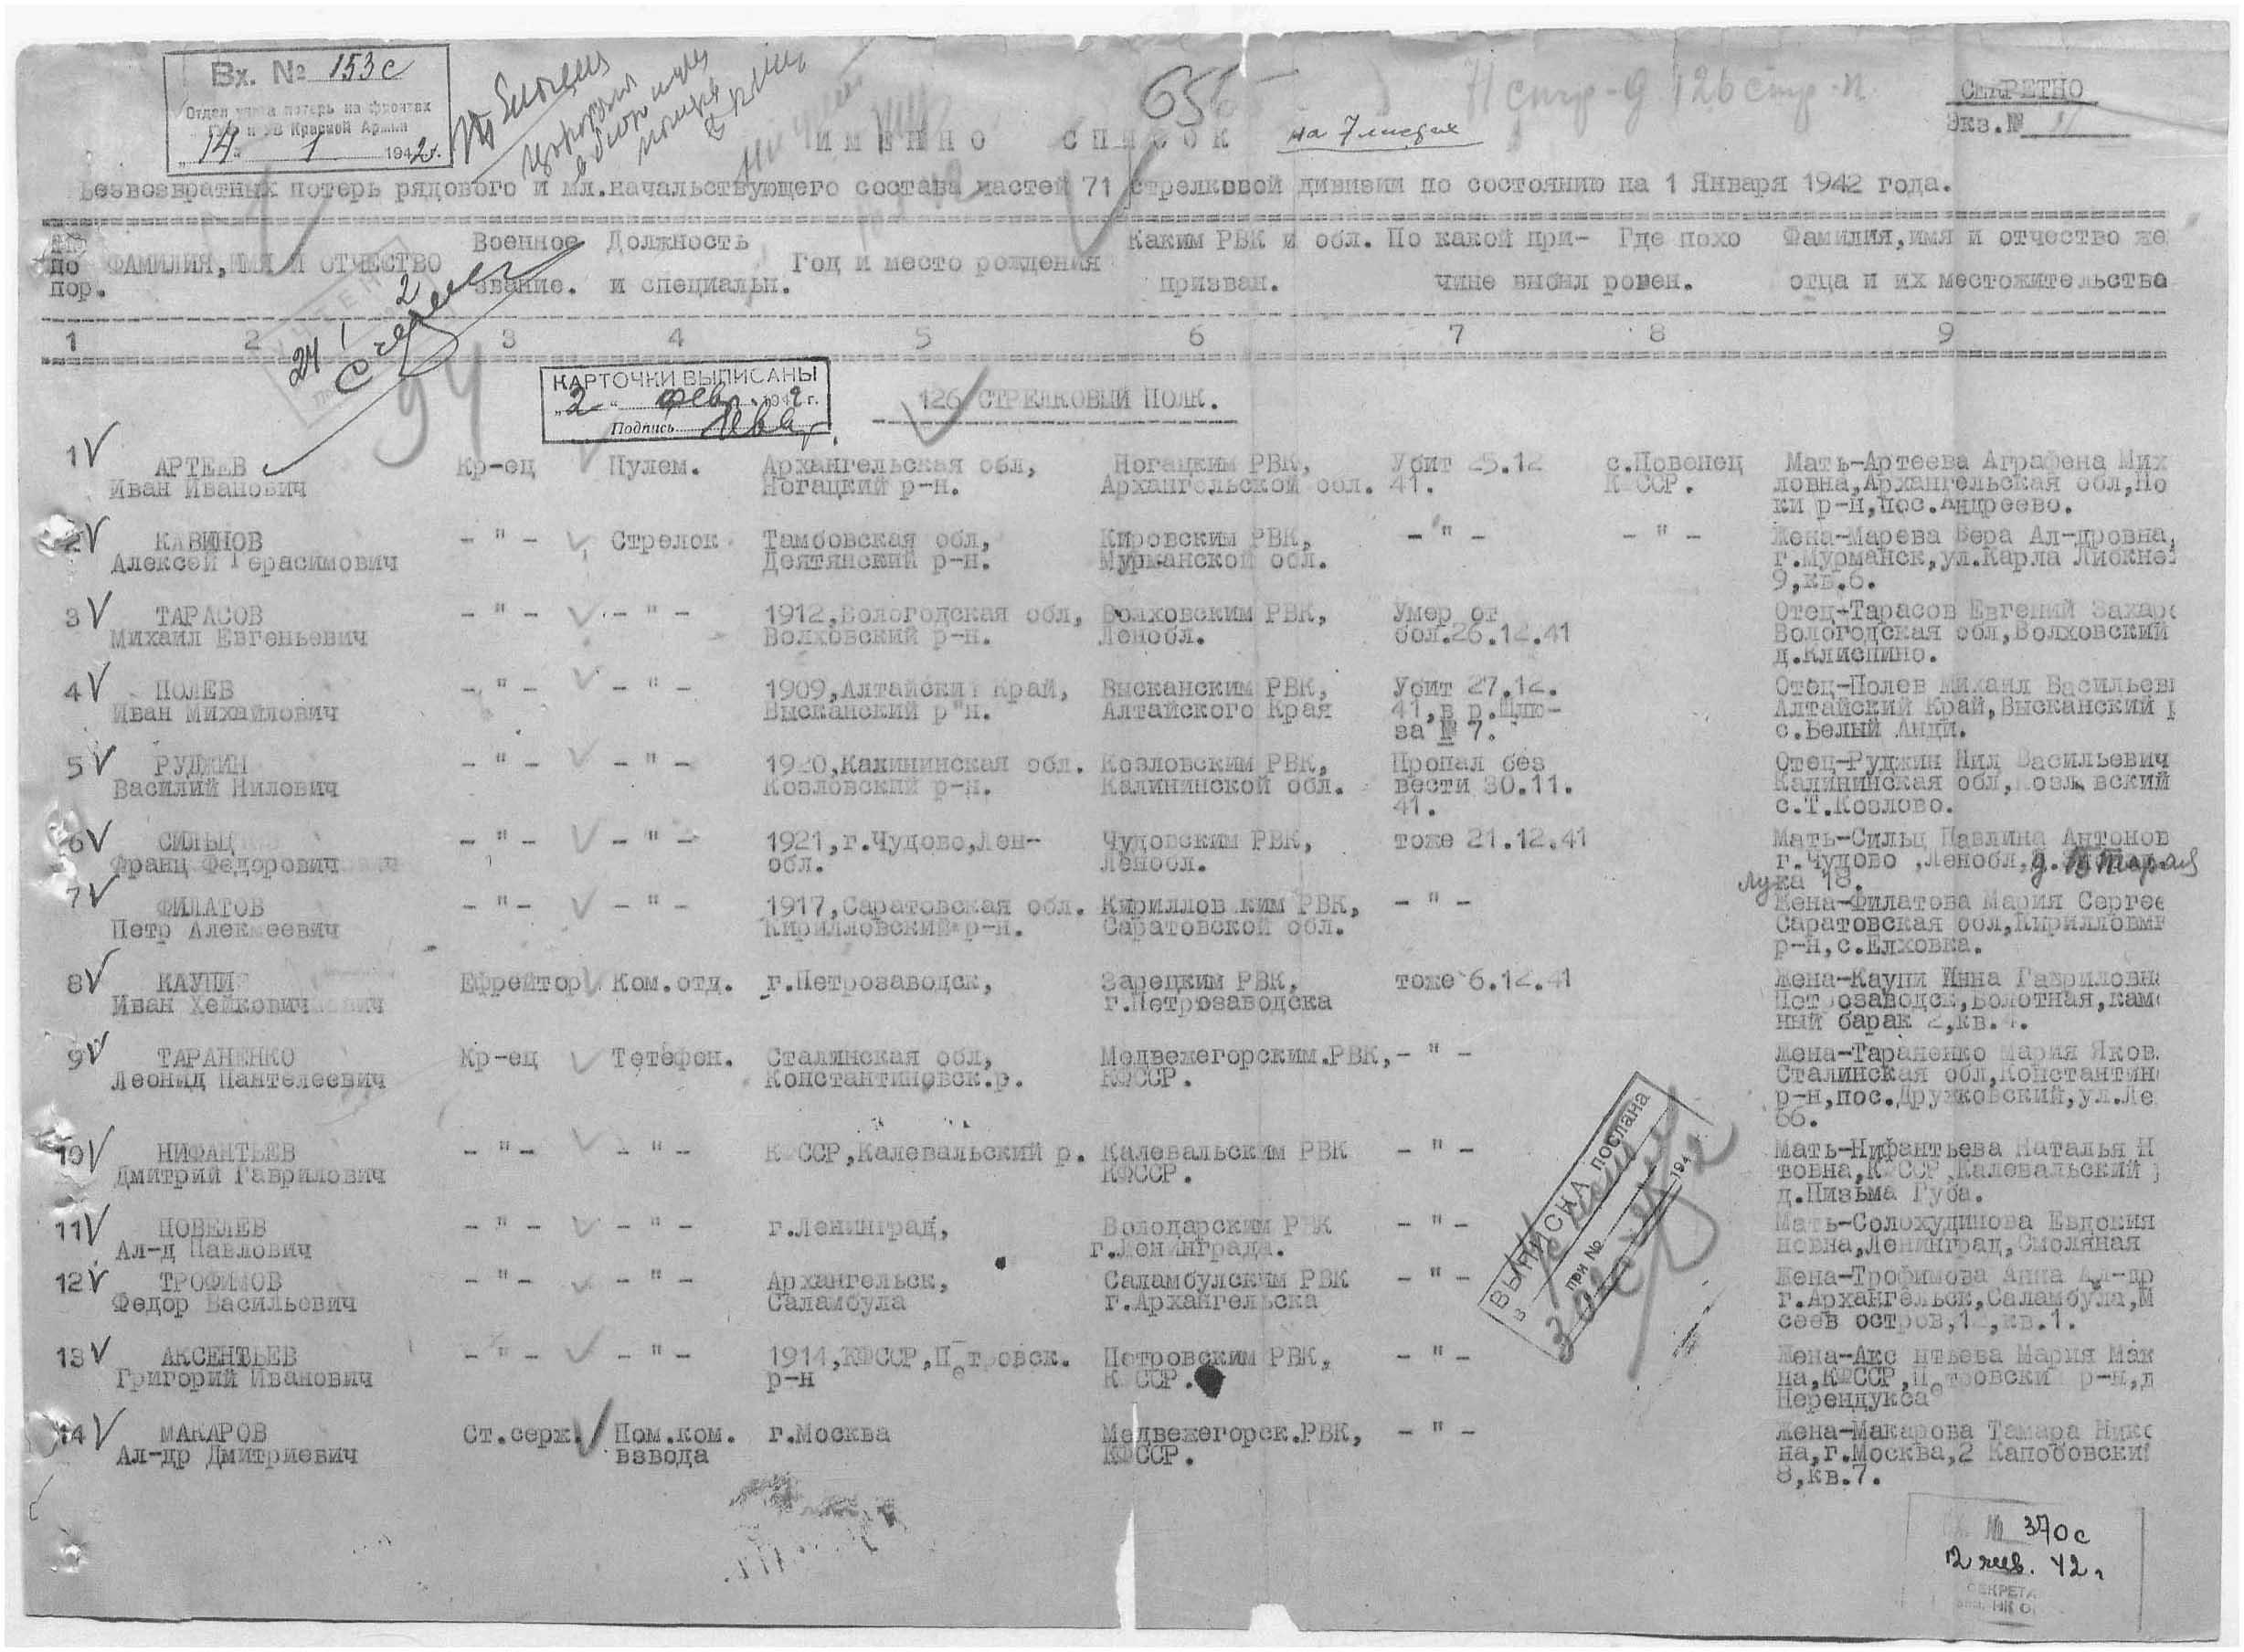 Вх. № 153с
Отдел учета потерь на фронтах
и УВ Красной Армии
"14" 1 1942г.
656
71 стр-д 126 стр-п
СЕКРЕТНО
Экз.№
ИМЕННО СПИСОК на 7 листах
Безвозвратных потерь рядового и мл.начальствующего состава частей 71 стрелковой дивизии по состоянию на 1 Января 1942 года.
№№ по пор. ФАМИЛИЯ,ИМЯ И ОТЧЕСТВО Военное звание. Должность и специальн. Год и место рождения Каким РВК и обл. призван. По какой причине выбыл Где похоронен. Фамилия,имя и отчество же
отца и их местожительство
1 2 3 4 5 6 7 8 9
24 1 2
94
КАРТОЧКИ ВЫПИСАНЫ
"2" фев. 1942 г.
Подпись
126 СТРЕЛКОВЫЙ ПОЛК.
1 АРТЕЕВ Кр-ец Пулем. Архангельская обл, Ногацким РВК, Убит 25.12 с.Повенец Мать-Артеева Аграфена Мих
Иван Иванович Ногацкий р-н. Архангельской обл. 41. КФССР. ловна,Архангельская обл,Но
ки р-н,пос.Андреево.
2 КАВИНОВ - " - Стрелок Тамбовская обл, Кировским РВК, - " - - " - Жена-Марева Вера Ал-дровна,
Алексей Герасимович Деятянский р-н. Мурманской обл. г.Мурманск,ул.Карла Либкне
9,кв.6.
3 ТАРАСОВ - " - - " - 1912,Вологодская обл, Волховским РВК, Умер от Отец-Тарасов Евгений Захаро
Михаил Евгеньевич Волховский р-н. Ленобл. бол.26.12.41 Вологодская обл,Волховский
д.Клиспино.
4 ПОЛЕВ - " - - " - 1909,Алтайский Край, Высканским РВК, Убит 27.12. Отец-Полев Михаил Васильев
Иван Михайлович Высканский р"н. Алтайского Края 41,в р.Шлю- Алтайский Край,Высканский р
за № 7. с.Белый Анди.
5 РУДЖИН - " - - " - 1920,Калининская обл. Козловским РВК, Пропал без Отец-Руджин Нил Васильевич
Василий Нилович Козловский р-н. Калининской обл. вести 30.11. Калининская обл, озл вский
41. с.Т.Козлово.
6 СИЛЬЦ - " - - " - 1921,г.Чудово,Лен- Чудовским РВК, тоже 21.12.41 Мать-Сильц Павлина Антонов
Франц Федорович обл. Ленобл. г.Чудово ,Ленобл,
Лука 18.
7 ФИЛАТОВ - " - - " - 1917,Саратовская обл. Кириллов ким РВК, - " - Жена-Филатова Мария Сергее
Петр Алексеевич Кирилловский р-н. Саратовской обл. Саратовская обл,Кирилловкы
р-н,с.Елховка.
8 КАУПИ Ефрейтор Ком.отд. г.Петрозаводск, Зарецким РВК, тоже 6.12.41 Жена-Каупи Инна Гавриловна
Иван Хейкович г.Петрозаводска Петрозаводск,Болотная,кам
ный барак 2,кв.4.
9 ТАРАНЕНКО Кр-ец Тетефон. Сталинская обл, Медвежегорским.РВК, - " - Жена-Тараненко Мария Яков
Леонид Пантелеевич Константиновск.р. КФССР. Сталинская обл,Константин
р-н,пос.Дружковский,ул.Ле
66.
10 НИФАНТЬЕВ - " - - " - КФССР,Калевальский р. Калевальским РВК - " - Мать-Нифантьева Наталья Н
Дмитрий Гаврилович КФССР. товна,КФССР,Калевальский
д.Пизьма Губа.
11 ПОВЕЛЕВ - " - - " - г.Ленинград, Володарским РВК - " - Мать-Солохудинова Евдокия
Ал-д Павлович г.Ленинграда. новна,Ленинград,Смоляная
12 ТРОФИМОВ - " - - " - Архангельск, Саламбулским РВК - " - Жена-Трофимова Анна Ал-др
Федор Васильевич Саламбула г.Архангельска г.Архангельск,Саламбула,М
сеев остров,12,кв.1.
13 АКСЕНТЬЕВ - " - - " - 1914,КФССР,Петровск. Петровским РВК, - " - Жена-Акс нтьева Мария Мак
Григорий Иванович р-н КФССР. на,КФССР,Петровски р-н,д
Нерендукса
14 МАКАРОВ Ст.серж. Пом.ком. г.Москва Медвежегорск.РВК, - " - Жена-Макарова Тамара Нико
Ал-др Дмитриевич взвода КФССР. на,г.Москва,2 Капобовский
8,кв.7.
ВЫПИСКА послана
в
при № 194
Вх. № 370с
12 янв. 42 г
СЕКРЕТ